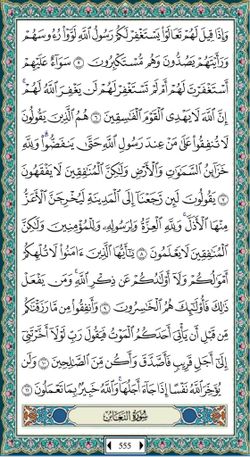 وَإِذَا قِيلَ لَهُمْ تَعَالَوْا۟ يَسْتَغْفِرْ لَكُمْ رَسُولُ ٱللَّهِ لَوَّوْا۟ رُءُوسَهُمْ
وَرَأَيْتَهُمْ يَصُدُّونَ وَهُم مُّسْتَكْبِرُونَ ٥ سَوَآءٌ عَلَيْهِمْ
أَسْتَغْفَرْتَ لَهُمْ أَمْ لَمْ تَسْتَغْفِرْ لَهُمْ لَن يَغْفِرَ ٱللَّهُ لَهُمْ ۚ
إِنَّ ٱللَّهَ لَا يَهْدِى ٱلْقَوْمَ ٱلْفَـٰسِقِينَ ٦ هُمُ ٱلَّذِينَ يَقُولُونَ
لَا تُنفِقُوا۟ عَلَىٰ مَنْ عِندَ رَسُولِ ٱللَّهِ حَتَّىٰ يَنفَضُّوا۟ ۗ وَلِلَّهِ
خَزَآئِنُ ٱلسَّمَـٰوَٰتِ وَٱلْأَرْضِ وَلَـٰكِنَّ ٱلْمُنَـٰفِقِينَ لَا يَفْقَهُونَ
٧ يَقُولُونَ لَئِن رَّجَعْنَآ إِلَى ٱلْمَدِينَةِ لَيُخْرِجَنَّ ٱلْأَعَزُّ
مِنْهَا ٱلْأَذَلَّ ۚ وَلِلَّهِ ٱلْعِزَّةُ وَلِرَسُولِهِۦ وَلِلْمُؤْمِنِينَ وَلَـٰكِنَّ
ٱلْمُنَـٰفِقِينَ لَا يَعْلَمُونَ ٨ يَـٰٓأَيُّهَا ٱلَّذِينَ ءَامَنُوا۟ لَا تُلْهِكُمْ
أَمْوَٰلُكُمْ وَلَآ أَوْلَـٰدُكُمْ عَن ذِكْرِ ٱللَّهِ ۚ وَمَن يَفْعَلْ
ذَٰلِكَ فَأُو۟لَـٰٓئِكَ هُمُ ٱلْخَـٰسِرُونَ ٩ وَأَنفِقُوا۟ مِن مَّا رَزَقْنَـٰكُم
مِّن قَبْلِ أَن يَأْتِىَ أَحَدَكُمُ ٱلْمَوْتُ فَيَقُولَ رَبِّ لَوْلَآ أَخَّرْتَنِىٓ
إِلَىٰٓ أَجَلٍ قَرِيبٍ فَأَصَّدَّقَ وَأَكُن مِّنَ ٱلصَّـٰلِحِينَ ١٠ وَلَن
يُؤَخِّرَ ٱللَّهُ نَفْسًا إِذَا جَآءَ أَجَلُهَا ۚ وَٱللَّهُ خَبِيرٌۢ بِمَا تَعْمَلُونَ ١١
سُورَةُ التَّغَابُنِ
555